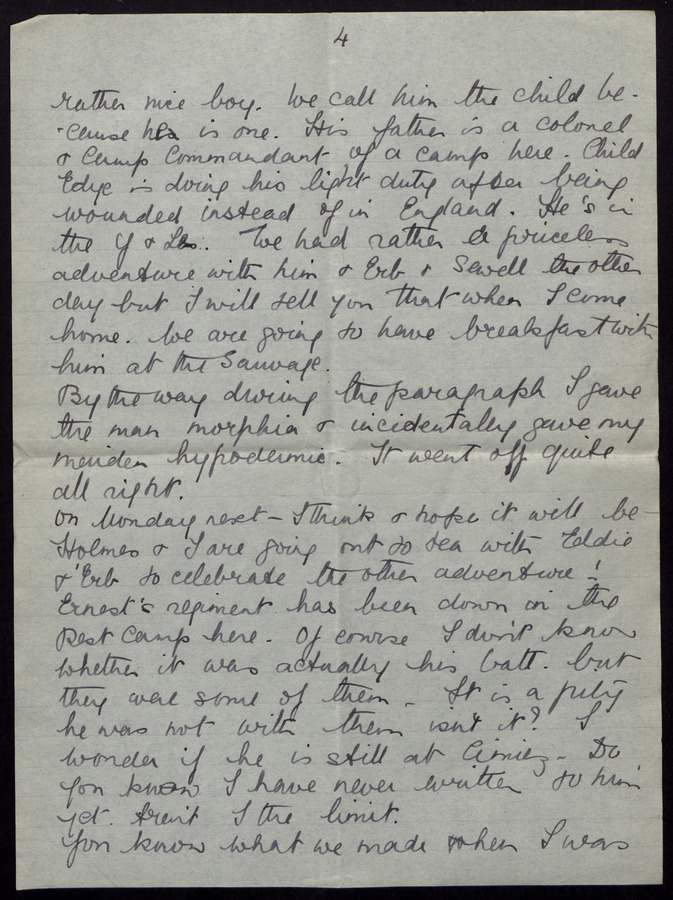 4
rather nice boy. We call him the child be-
-cause he is one. His father is a colonel
& Camp Commandant of a camp here. Child
Edye is doing his light duty after being
wounded instead of in England. He's in
the Y & Ls.. We had rather a priceless
adventure with him & Erb & Sewell the other
day but I will tell you that when I come
home. We are going to have breakfast with
him at the Sauvage.
By the way during the paragraph I gave
the man morphia & incidentally gave my
meiden hypodermic. It went off quite
all right.
On Monday next - I think & hope it will be -
Holmes & I are going out to tea with Eddie
& 'Erb to celebrate the other adventure!
Ernest's regiment has been down in the
Rest Camp here. Of course I don't know
whether it was actually his batt. but
they were some of them. It is a pity
he was not with them isn't it? I
wonder if he is still at Cimiez. Do
you know I have never written to him
yet. Aren't I the limit.
You know what we made when I was